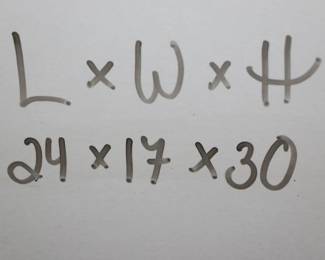 L × W × H
24 × 17 × 30